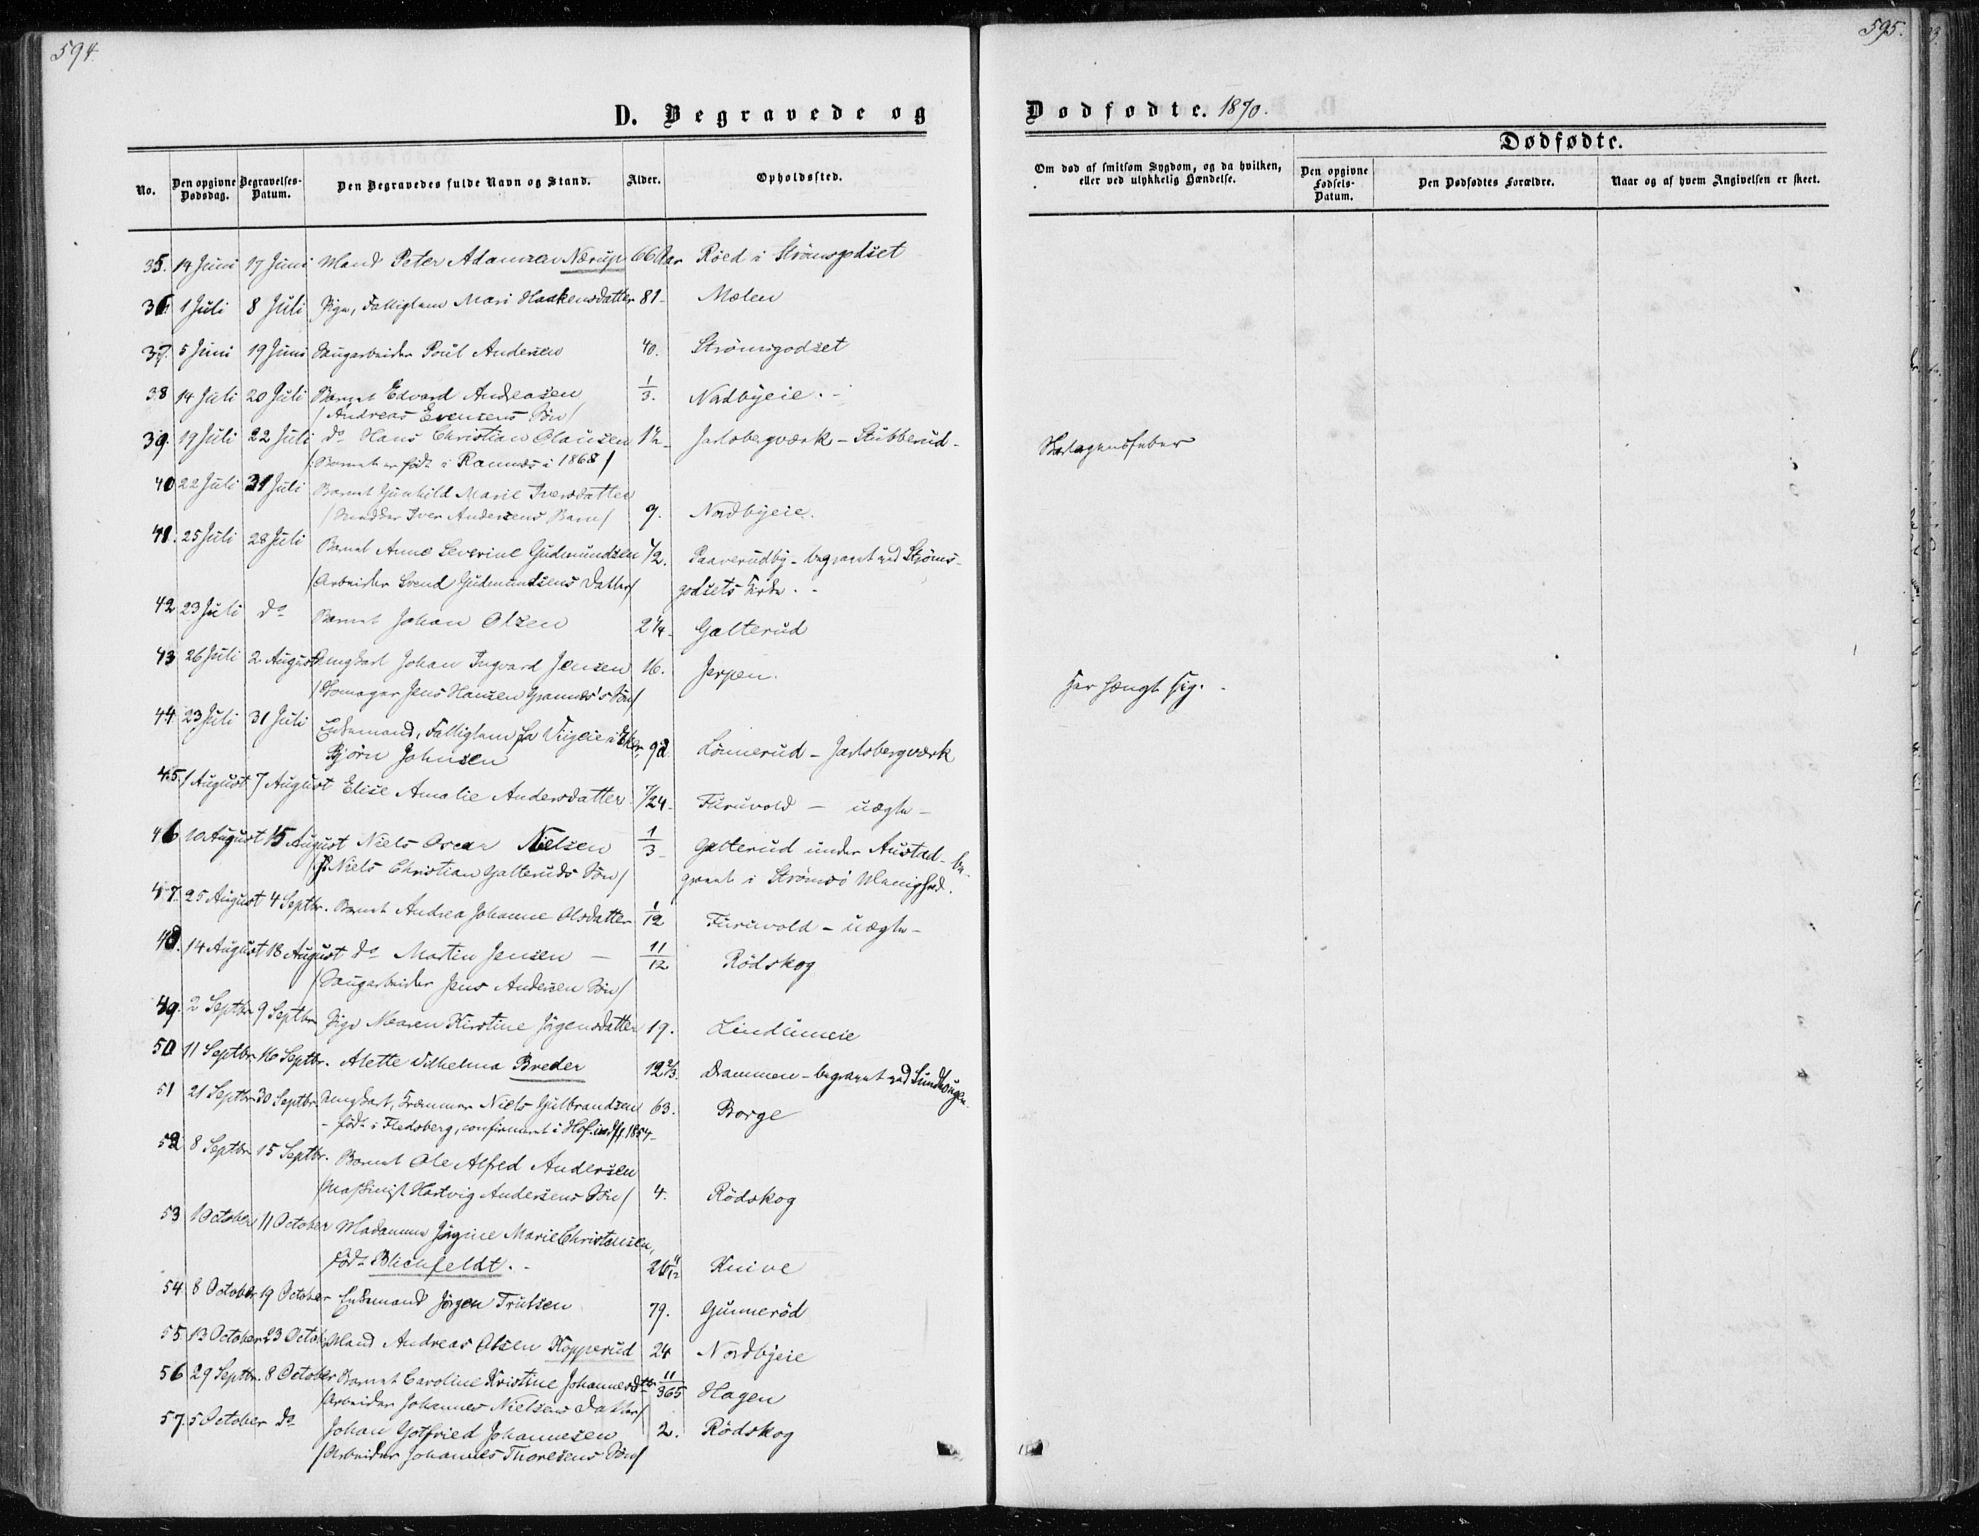 594.
D. Begravede og
No.
Den opgivne Dødsdag.
Begravelses-Datum.
Den Begravedes fulde Navn og Stand.
Alder.
Opholdssted.
35. 14 Juni 17 Juni Mand Peter Adamsen Nærup 66 Aar Røed i Strömsgodset
36. 1 Juli 8 Juli Pige, Fattiglem Mari Haakensdatter 81- Mælen
37. 5 Juni 19 Juni Saugarbeider Poul Andersen 40. Strömsgodset
38 14 Juli 20 Juli Barnet Edvard Andreasen 1/3. Nordbyeie.
/Andreas Evensens Søn/
39. 19 Juli 22 Juli do Hans Christian Olausen 1½- Jarlsbergværk - Stubberud-
/Barnet er født i Ramnæs i 1868/
40 22 Juli 31 Juli Barnet Gunhild Marie Iversdatter
Iver Andersens Barn/ 9. Nordbyeie.
41. 25 Juli 28 Juli Barnet Anne Severine Gudmundsen ½. Paaverudby - begravet ved Ströms-
/Arbeider Svend Gudmundsens Datter/ godsets Kirke.
42 23 Juli do Barnet Johan Olsen 2¼- Galterud
43 26 Juli 2 August Ungkarl Johan Ingvard Jensen 16. Jerpen.
/Skomager Jens Hansen Søn/
44. 23 Juli 31 Juli Enkemand, Fattiglem fra i Eker,
Bjørn Johnsen 92 Lönnerud - Jarlsbergværk
45. 1 August 7 August Elise Amalie Andersdatter /24- Furuvold - uægte-
46 10 August 15 August Niels Oscar Nielsen 1/3- Galterud under Austad - be-
/Niels Christian Galteruds Søn/ gravet i Strömsö Menighed.
47. 25 August 4 Septbr. Barnet Andrea Johanne Olsdatter 1/12 Furuvold - uægte-
48. 14 August 18 August do Martin Jensen - 11/12 Rödskog
/Saugarbeider Jens Andersen Søn/
49. 2 Septbr 9 Septbr Pige Maren Kirstine Jögensdatter 19. Lindumeie
50 11 Septbr 16 Septbr. Alette Vilhelmina Breder 12⅔. Drammen - begravet ved Sundhaugen.
51 21 Septbr 30 Septbr. Ungkarl, Niels Gulbrandsen 63. Borge
- født i Flesberg, confirmeret i Hof 1854-
52 8 Septbr 15 Septbr. Barnet Ole Alfred Andersen
/Maskinist Hartvig Andersens Søn/ 4. Rödskog
53 1 October 11 October Madamme Jörgine Marie Christensen,
født Blichfeldt. - 20 11/12 Knive
54 8 October 19 October Enkemand Jörgen Trulsen 79. Gunneröd
55 13 October 23 Octob. Mand Andreas Olsen Kopperud 24 Nordbyeie
56 29 Septbr. 8 October Barnet Caroline Kristine Johannesdtr 11/365 Hagen
/Arbeider Johannes Nielsens Datter/
57. 5 October do Johan Gotfried Johannesen 2. Rödskog
/Arbeider Johannes Thoresens Søn/
595.
Dødfødte. 1870.
Om død af smitsom Sygdom, og da hvilken, eller ved ulykkelig Hændelse.
Dødfødte.
Den opgivne Fødsels-Datum.
Den Dødfødtes Forældre.
Naar og af hvem Angivelsen er skeet.
Skarlagensfeber
Har hængt sig.